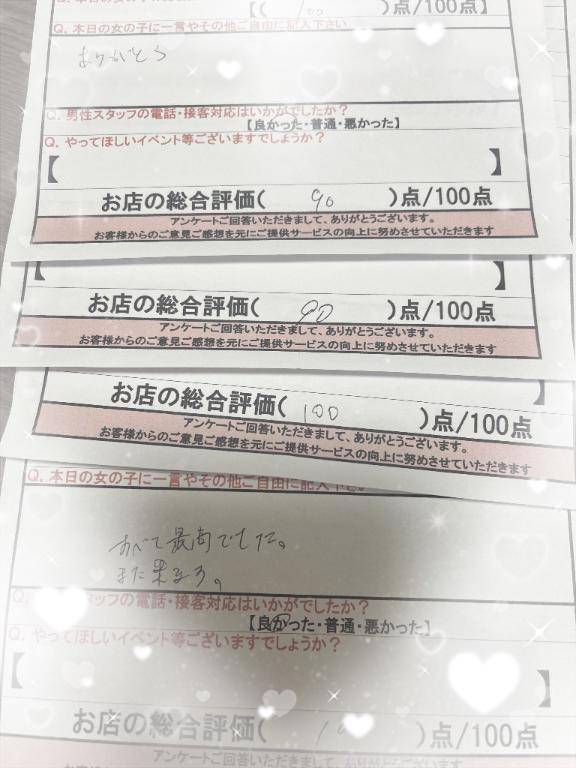 【( 100 )点/100点】
Q. 本日の女の子に一言やその他ご自由に記入下さい
ありがとう
Q. 男性スタッフの電話・接客対応はいかがでしたか？
【良かった・普通・悪かった】
Q. やってほしいイベント等ございますでしょうか？
【 】
お店の総合評価( 90 )点/100点
アンケートご回答いただきまして、ありがとうございます。
お客様からのご意見ご感想を元にご提供サービスの向上に努めさせていただきます
お店の総合評価( 90 )点/100点
アンケートご回答いただきまして、ありがとうございます。
お客様からのご意見ご感想を元にご提供サービスの向上に努めさせていただきます
お店の総合評価( 100 )点/100点
アンケートご回答いただきまして、ありがとうございます。
お客様からのご意見ご感想を元にご提供サービスの向上に努めさせていただきます
Q. 本日の女の子に一言やその他ご自由に記入下さい
すべて最高でした。
また来るろ。
スタッフの電話・接客対応はいかがでしたか？
【良かった・普通・悪かった】
Q. やってほしいイベント等ございますでしょうか？
【 】
お店の総合評価( )点/100点
アンケートご回答いただきまして、ありがとうございます。